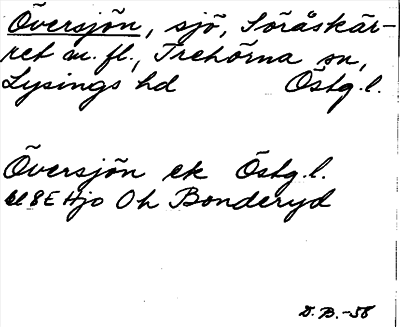 Översjön, sjö, Söråskär-
ret m. fl., Trehörna sn,
Lysings hd Östg.l.
Översjön ek Östg.l.
8E Hjo Oh Bonderyd
D.B.-58